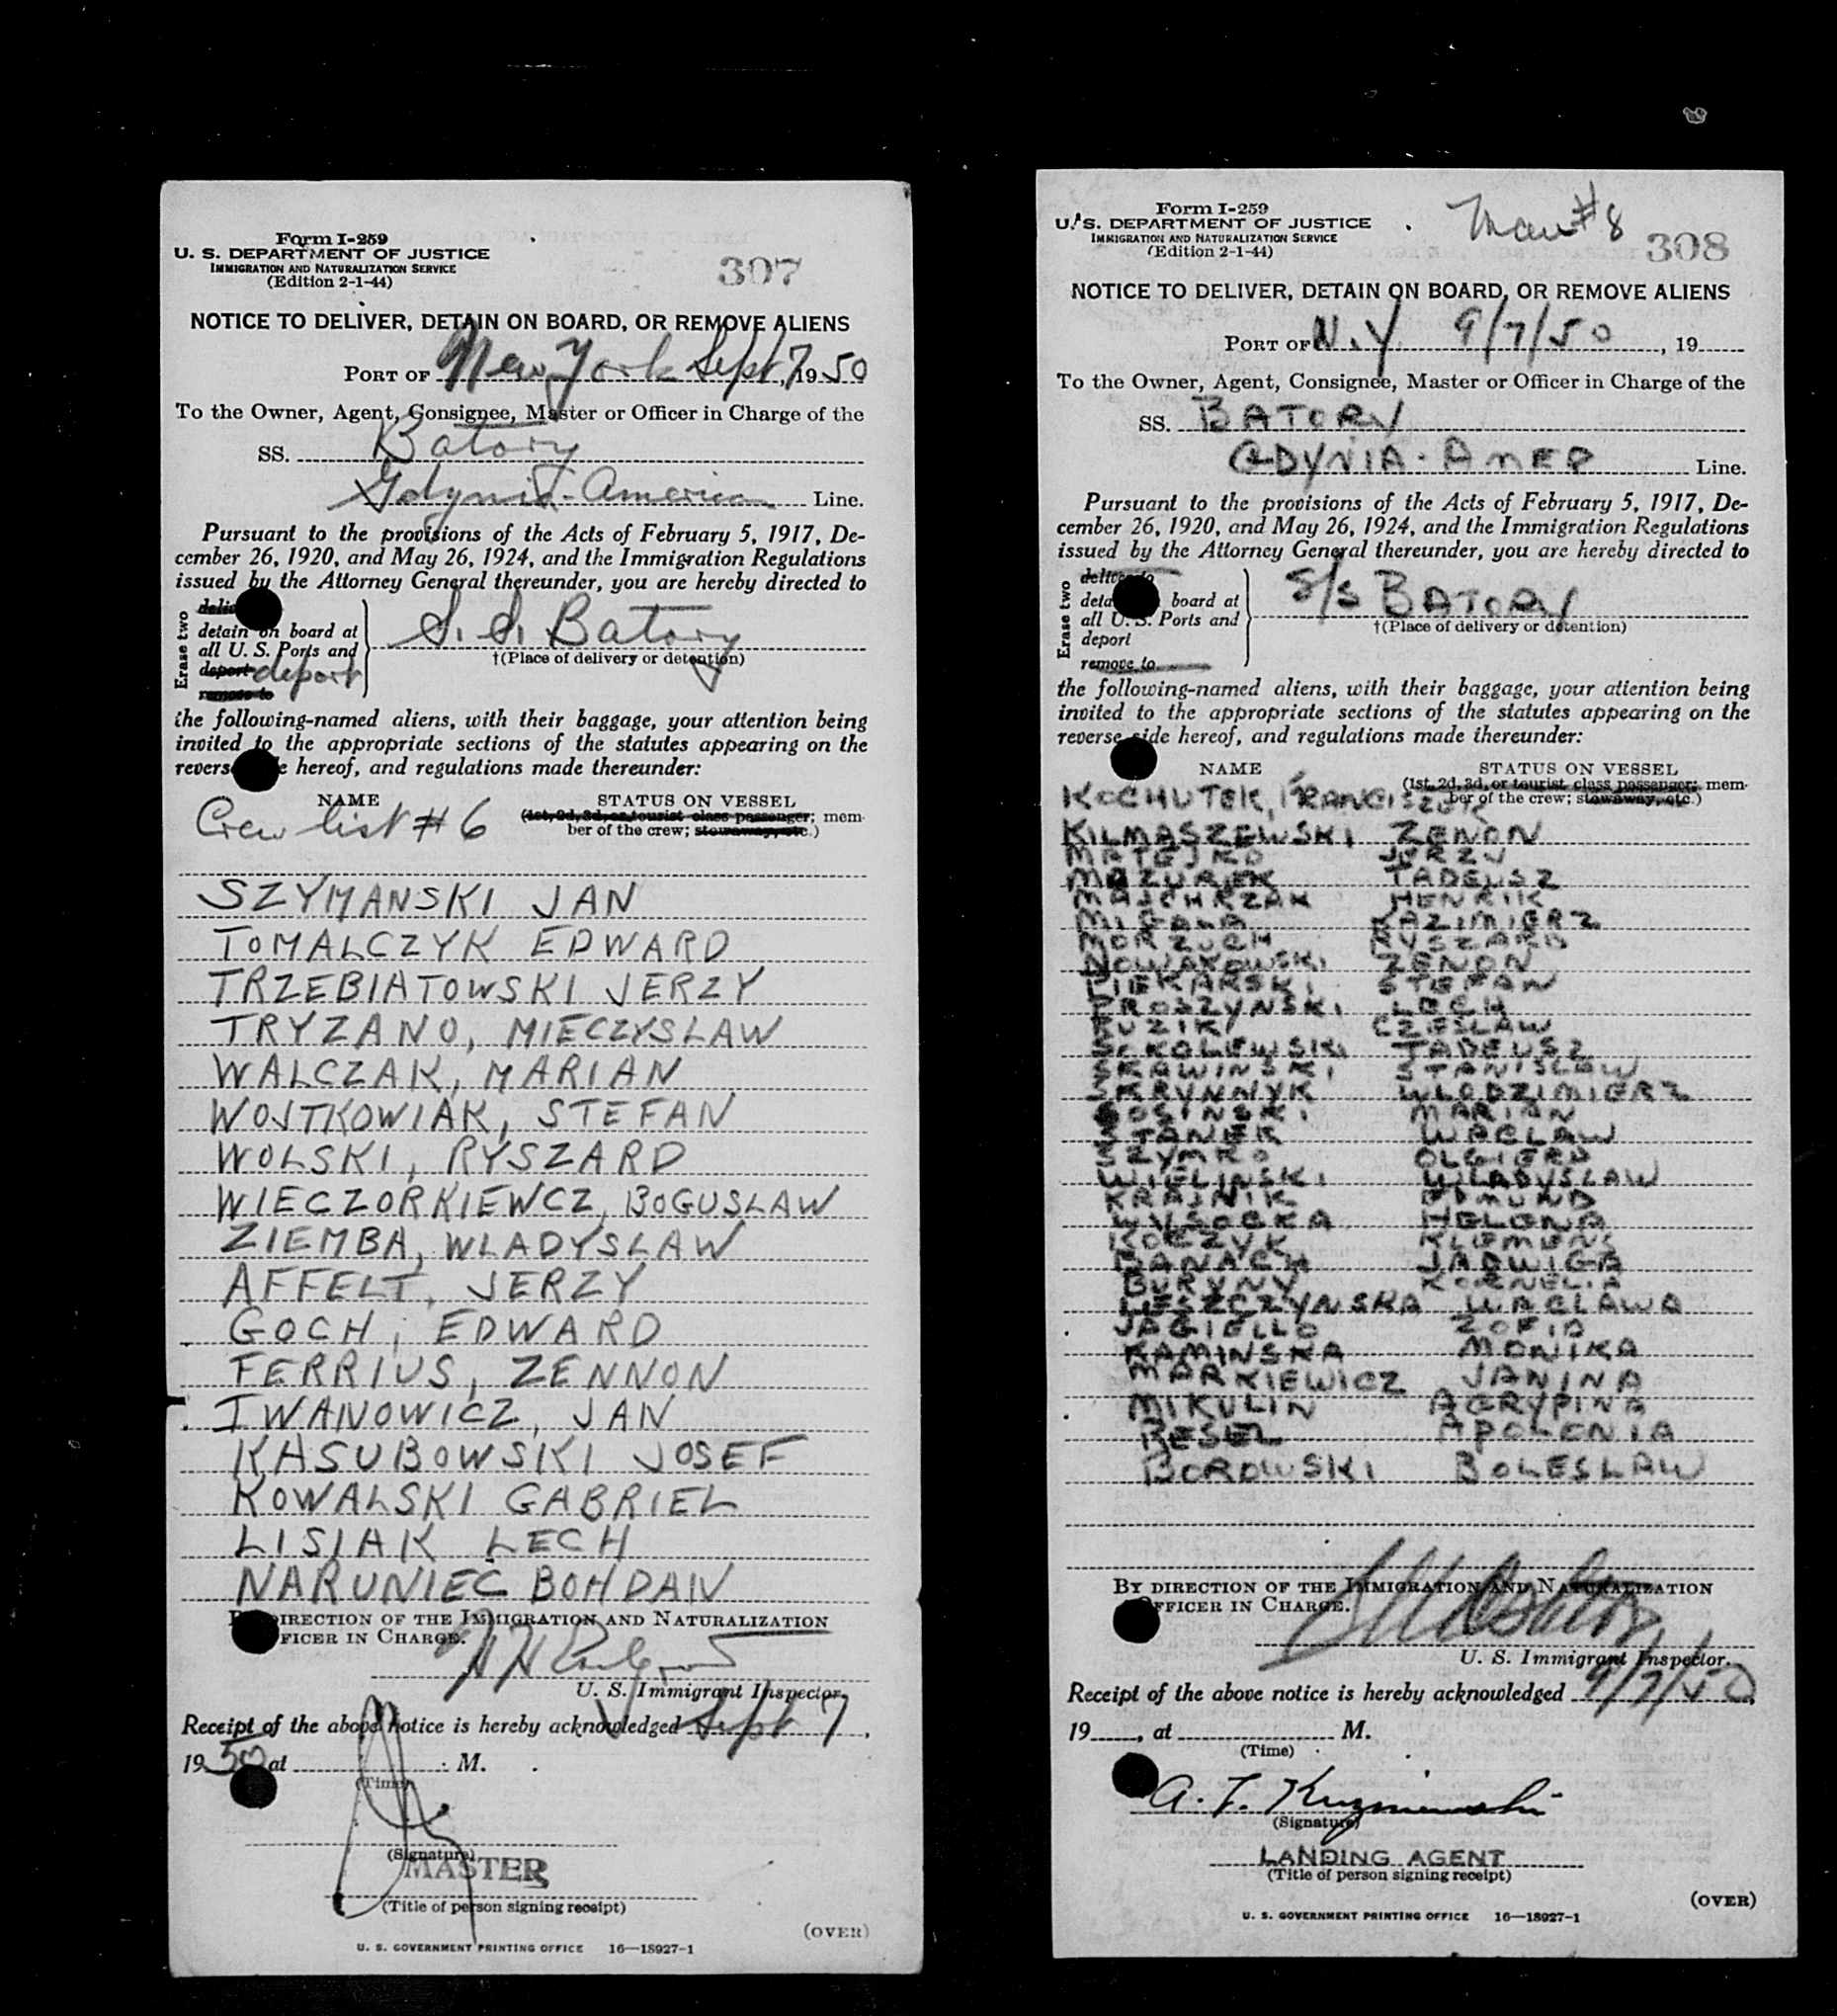 Form I-259
U. S. DEPARTMENT OF JUSTICE
IMMIGRATION AND NATURALIZATION SERVICE
(Edition 2-1-44)
307
NOTICE TO DELIVER, DETAIN ON BOARD, OR REMOVE ALIENS
PORT OF New York Sept 7, 1950
To the Owner, Agent, Consignee, Master or Officer in Charge of the
SS. Batory
Gdynia-America Line.
Pursuant to the provisions of the Acts of February 5, 1917, De-
cember 26, 1920, and May 26, 1924, and the Immigration Regulations
issued by the Attorney General thereunder, you are hereby directed to
Erase two
detain on board at
all U. S. Ports and
deport deport
remove to
S.S. Batory
†(Place of delivery or detention)
the following-named aliens, with their baggage, your attention being
invited to the appropriate sections of the statutes appearing on the
hereof, and regulations made thereunder:
NAME
STATUS ON VESSEL
(1st, 2d, 3d, or tourist class passenger; mem-
ber of the crew; stowaway, etc.)
Crew list # 6
SZYMANSKI JAN
TOMALCZYK EDWARD
TRZEBIATOWSKI JERZY
TRYZANO, MIECZYSLAW
WALCZAK, MARIAN
WOJTKOWIAK, STEFAN
WOLSKI, RYSZARD
WIECZORKIEWCZ, BOGUSLAW
ZIEMBA, WLADYSLAW
AFFELT, JERZY
GOCH, EDWARD
FERRIUS, ZENNON
IWANOWICZ, JAN
KASUBOWSKI JOSEF
KOWALSKI GABRIEL
LISIAK LECH
NARUNIEC BOHDAN
DIRECTION OF THE IMMIGRATION AND NATURALIZATION
OFFICER IN CHARGE.
U. S. Immigrant Inspector.
Receipt of the above notice is hereby acknowledged Sept 7,
1950 at M.
(Time)
(Signature)
MASTER
(Title of person signing receipt)
(OVER)
U. S. GOVERNMENT PRINTING OFFICE 16—18927-1
Form I-259
U. S. DEPARTMENT OF JUSTICE
IMMIGRATION AND NATURALIZATION SERVICE
(Edition 2-1-44)
#8
308
NOTICE TO DELIVER, DETAIN ON BOARD, OR REMOVE ALIENS
PORT OF N.Y 9/7/50, 19
To the Owner, Agent, Consignee, Master or Officer in Charge of the
SS. BATORY
GDYNIA-AMER Line.
Pursuant to the provisions of the Acts of February 5, 1917, De-
cember 26, 1920, and May 26, 1924, and the Immigration Regulations
issued by the Attorney General thereunder, you are hereby directed to
Erase two
deliver to
board at
all U. S. Ports and
deport
remove to
S/S BATORY
†(Place of delivery or detention)
the following-named aliens, with their baggage, your attention being
invited to the appropriate sections of the statutes appearing on the
reverse side hereof, and regulations made thereunder:
NAME
STATUS ON VESSEL
(1st, 2d, 3d, or tourist class passenger; mem-
ber of the crew; stowaway, etc.)
KOCHUTEK, FRANCISZEK
KILMASZEWSKI ZENON
MATEJKO JERZY
MAZUREK TADEUSZ
MAJCHRZAK HENRIK
MIGALA KAZIMIERZ
MORZUCH RYSZARD
NOWAKOWSKI ZENON
PIEKARSKI STEFAN
PROSZYNSKI LECH
RUZIK CZESLAW
SOKOLEWSKI TADEUSZ
SKAWINSKI STANISLAW
SKRYNNYK WLODZIMIERZ
SOSINSKI MARIAN
STANEK WACLAW
SZYMKO OLGIERD
WIELINSKI WLADYSLAW
KRAJNIK EDMUND
WYSOCKA HELENA
KOCZYK KLEMENS
BANACH JADWIGA
BURYNY KORNELIA
LESZCZYNSKA WACLAWA
JAGIELLO ZOFIA
KAMINSKA MONIKA
MARKIEWICZ JANINA
MIKULIN AGRYPINA
BESEL APOLONIA
BOROWSKI BOLESLAW
BY DIRECTION OF THE IMMIGRATION AND NATURALIZATION
OFFICER IN CHARGE.
U. S. Immigrant Inspector.
Receipt of the above notice is hereby acknowledged 9/7/50,
19, at M.
(Time)
(Signature)
LANDING AGENT
(Title of person signing receipt)
(OVER)
U. S. GOVERNMENT PRINTING OFFICE 16—18927-1